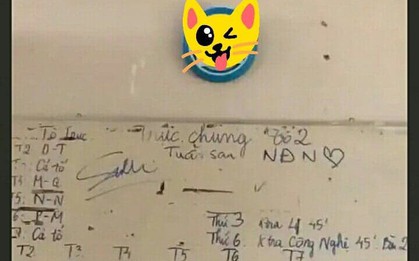 Tổ Trực Trực chung Tổ 2
T2 O-T Tuần sau NĐN♡
Cả tổ
M-Q
5: N-N
6: P-M Thứ 3 Ktra Lý 45'
7. Cả tổ Thứ 6 Ktra Công Nghệ 45' Bàn 2
T2 T3 T4 T5 T6 T7